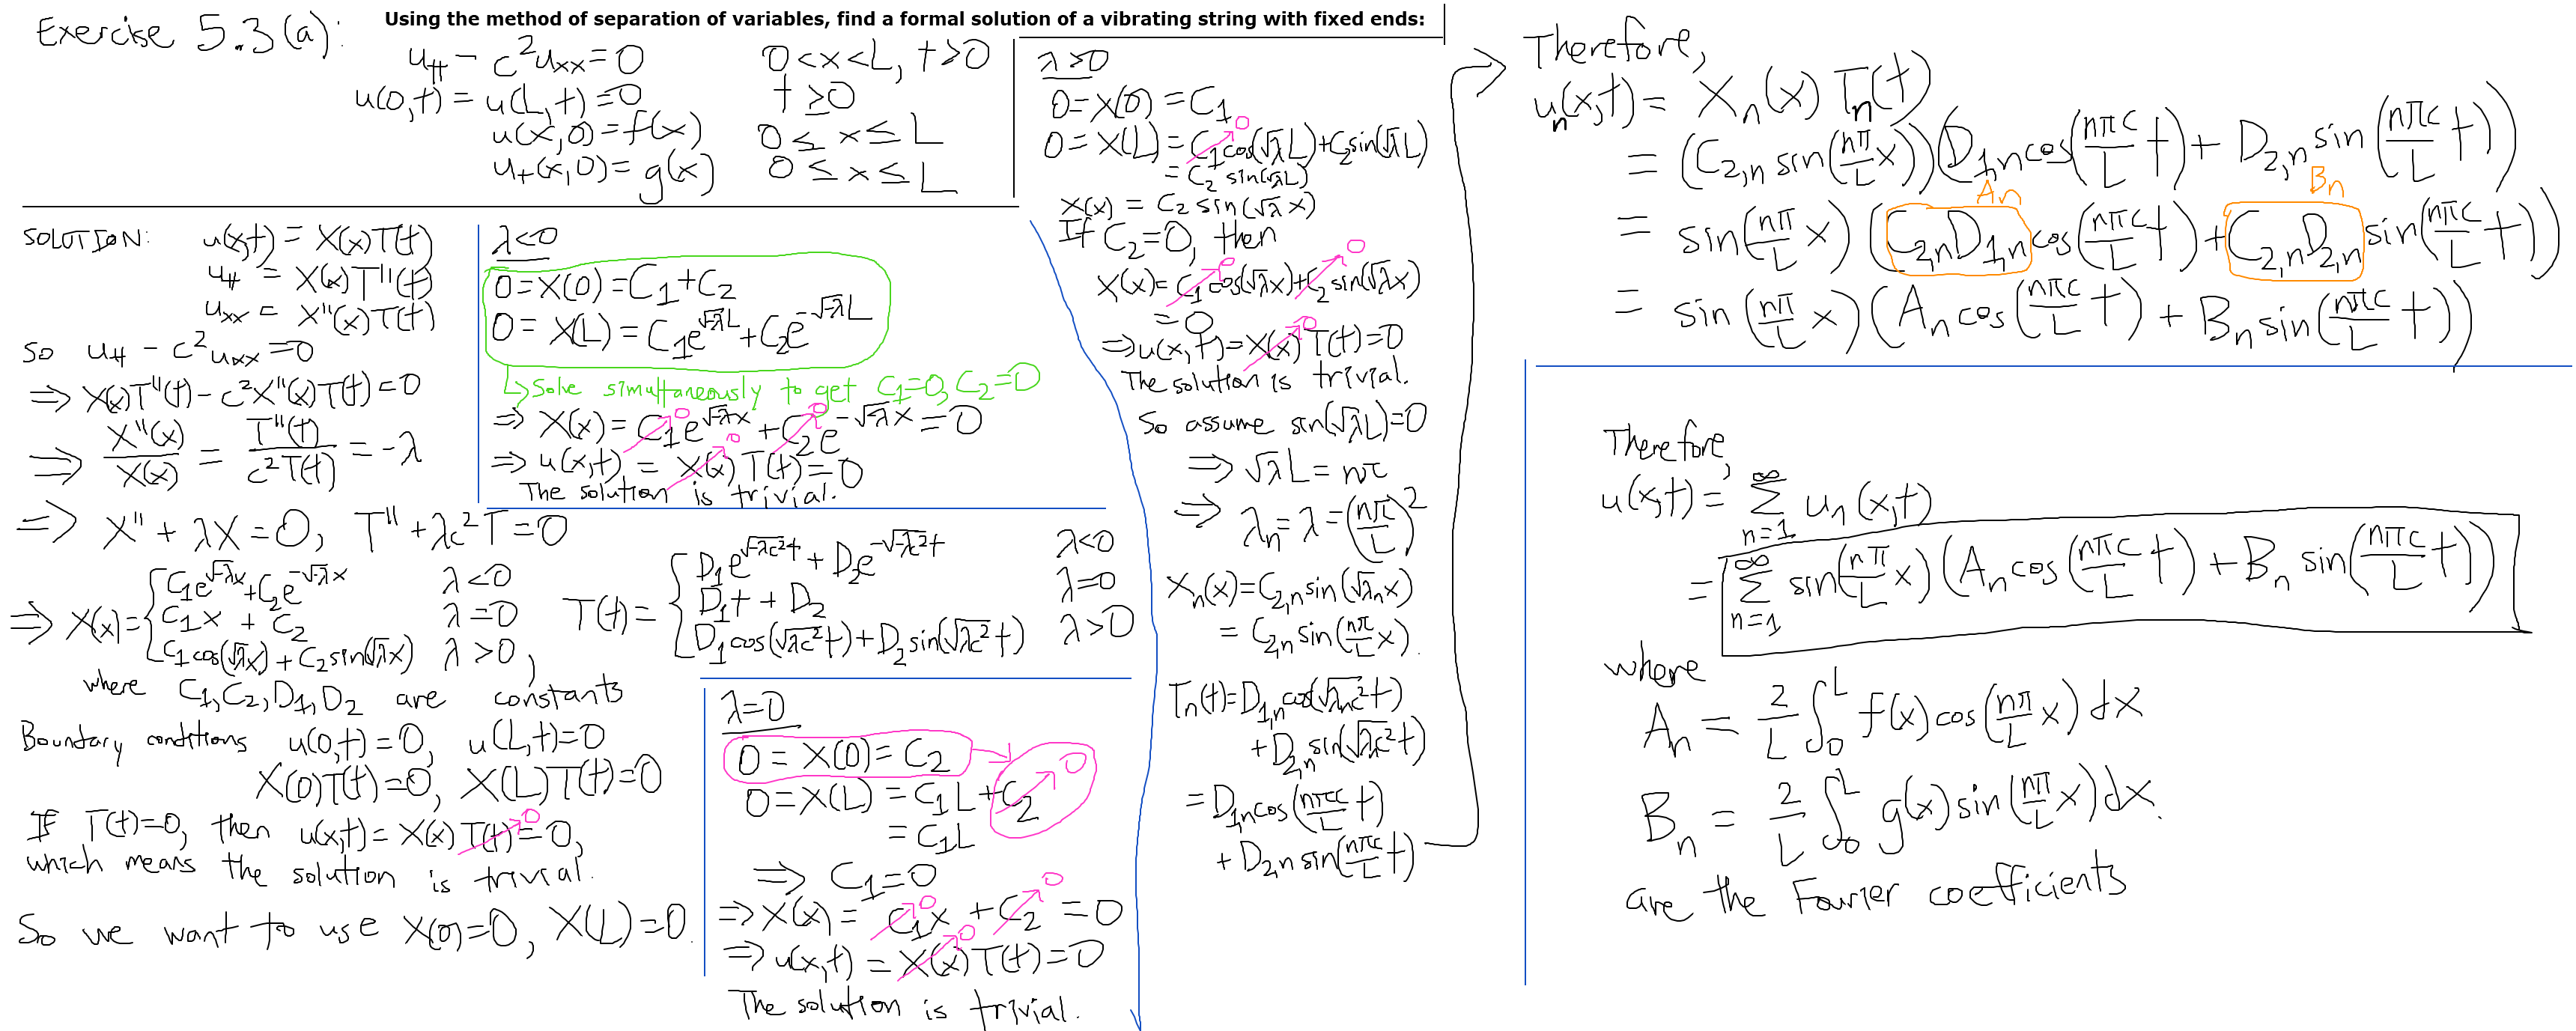 Exercise 5.3(a): Using the method of separation of variables, find a formal solution of a vibrating string with fixed ends:
u_tt - c²u_xx = 0   0<x<L, t>0
u(0,t) = u(L,t) = 0   t≥0
u(x,0) = f(x)   0 ≤ x ≤ L
u_t(x,0) = g(x)   0 ≤ x ≤ L
SOLUTION: u(x,t) = X(x)T(t)
u_tt = X(x)T''(t)
u_xx = X''(x)T(t)
So u_tt - c²u_xx = 0
⇒ X(x)T''(t) - c²X''(x)T(t) = 0
⇒ X''(x)/X(x) = T''(t)/(c²T(t)) = -λ
⇒ X'' + λX = 0, T'' + λc²T = 0
⇒ X(x) = { C₁e^(√-λ x) + C₂e^(-√-λ x)   λ<0
C₁x + C₂   λ=0
C₁cos(√λ x) + C₂sin(√λ x)   λ>0,
T(t) = { D₁e^(√-λc² t) + D₂e^(-√-λc² t)   λ<0
D₁t + D₂   λ=0
D₁cos(√λc² t) + D₂sin(√λc² t)   λ>0
where C₁, C₂, D₁, D₂ are constants
Boundary conditions u(0,t)=0, u(L,t)=0
X(0)T(t)=0, X(L)T(t)=0
If T(t)=0, then u(x,t) = X(x)T(t) 0 = 0,
which means the solution is trivial.
So we want to use X(0)=0, X(L)=0.
λ<0
0 = X(0) = C₁ + C₂
0 = X(L) = C₁e^(√-λ L) + C₂e^(-√-λ L)
↳ Solve simultaneously to get C₁=0, C₂=0
⇒ X(x) = C₁ 0 e^(√-λ x) + C₂ 0 e^(-√-λ x) = 0
⇒ u(x,t) = X(x) 0 T(t) = 0
The solution is trivial.
λ=0
0 = X(0) = C₂
0 = X(L) = C₁L + C₂ 0
= C₁L
⇒ C₁ = 0
⇒ X(x) = C₁ 0 x + C₂ 0 = 0
⇒ u(x,t) = X(x) 0 T(t) = 0
The solution is trivial.
λ>0
0 = X(0) = C₁
0 = X(L) = C₁ 0 cos(√λ L) + C₂sin(√λ L)
= C₂ sin(√λ L)
X(x) = C₂ sin(√λ x)
If C₂=0, then
X(x) = C₁ 0 cos(√λ x) + C₂ 0 sin(√λ x)
= 0
⇒ u(x,t) = X(x) 0 T(t) = 0
The solution is trivial.
So assume sin(√λ L) = 0
⇒ √λ L = nπ
⇒ λₙ = λ = (nπ/L)²
Xₙ(x) = C₂,ₙ sin(√λₙ x)
= C₂,ₙ sin(nπ/L x).
Tₙ(t) = D₁,ₙ cos(√λₙc² t)
+ D₂,ₙ sin(√λₙc² t)
= D₁,ₙ cos(nπc/L t)
+ D₂,ₙ sin(nπc/L t)
Therefore,
uₙ(x,t) = Xₙ(x) Tₙ(t)
= (C₂,ₙ sin(nπ/L x))(D₁,ₙ cos(nπc/L t) + D₂,ₙ sin(nπc/L t))
Aₙ Bₙ
= sin(nπ/L x)(C₂,ₙD₁,ₙ cos(nπc/L t) + C₂,ₙD₂,ₙ sin(nπc/L t))
= sin(nπ/L x)(Aₙ cos(nπc/L t) + Bₙ sin(nπc/L t))
Therefore,
u(x,t) = ∑_{n=1}^∞ uₙ(x,t)
= ∑_{n=1}^∞ sin(nπ/L x)(Aₙ cos(nπc/L t) + Bₙ sin(nπc/L t))
where
Aₙ = 2/L ∫₀^L f(x) cos(nπ/L x) dx
Bₙ = 2/L ∫₀^L g(x) sin(nπ/L x) dx.
are the Fourier coefficients